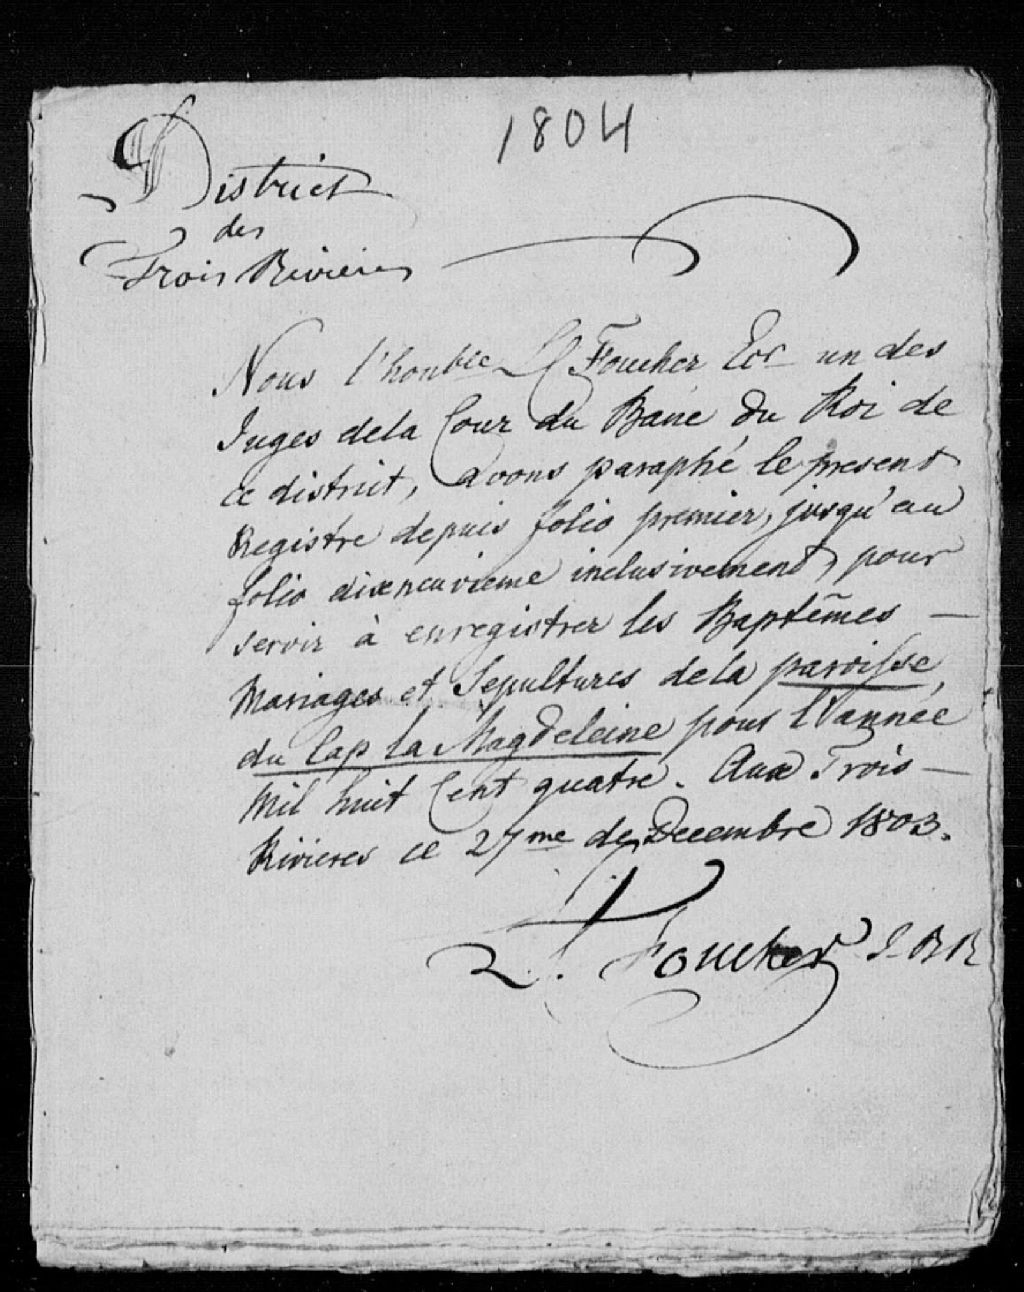 1804
District
des
Trois Rivieres
Nous l'honble L Foucher Ecr un des
Juges dela Cour du Banc du Roi de
ce district, avons paraphé le present
Registre depuis folio premier, jusqu'au
folio dixneuvieme inclusivement, pour
servir à enregistrer les Baptêmes —
Mariages et Sepultures dela paroisse,
du Cap la Magdeleine pour l'année
Mil huit Cent quatre. Aux Trois —
Rivieres ce 27me de Decembre 1803.
L. Foucher J.B.R